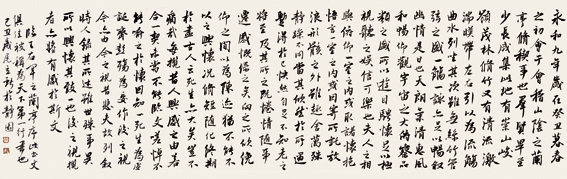 永和九年歲在癸丑暮春
之初會于會稽山陰之蘭
亭脩稧事也群賢畢至
少長咸集此地有崇山峻
領茂林脩竹又有清流激
湍暎帶左右引以為流觴
曲水列坐其次雖無絲竹管
弦之盛一觴一詠亦足以暢叙
幽情是日也天朗氣清惠風
和暢仰觀宇宙之大俯察品
類之盛所以遊目騁懷足以極
視聽之娛信可樂也夫人之相
與俯仰一世或取諸懷抱
悟言一室之內或因寄所託放
浪形骸之外雖趣舍萬殊
靜躁不同當其欣於所遇
暫得於己快然自足不知老之
將至及其所之既惓情隨事
遷感慨係之矣向之所欣俛
仰之間以為陳迹猶不能不
以之興懷況脩短隨化終期
於盡古人云死生亦大矣豈不
痛哉每攬昔人興感之由若
合一契未嘗不臨文嗟悼不
能喻之於懷固知一死生為虛
誕齊彭殤為妄作後之視
今亦由今之視昔悲夫故列叙
時人錄其所述雖世殊事異
所以興懷其致一也後之視攬
者亦將有感於斯文
臨王右軍之蘭亭序此文
俱佳被稱為天下第一行書也
己丑歲尾於靜園